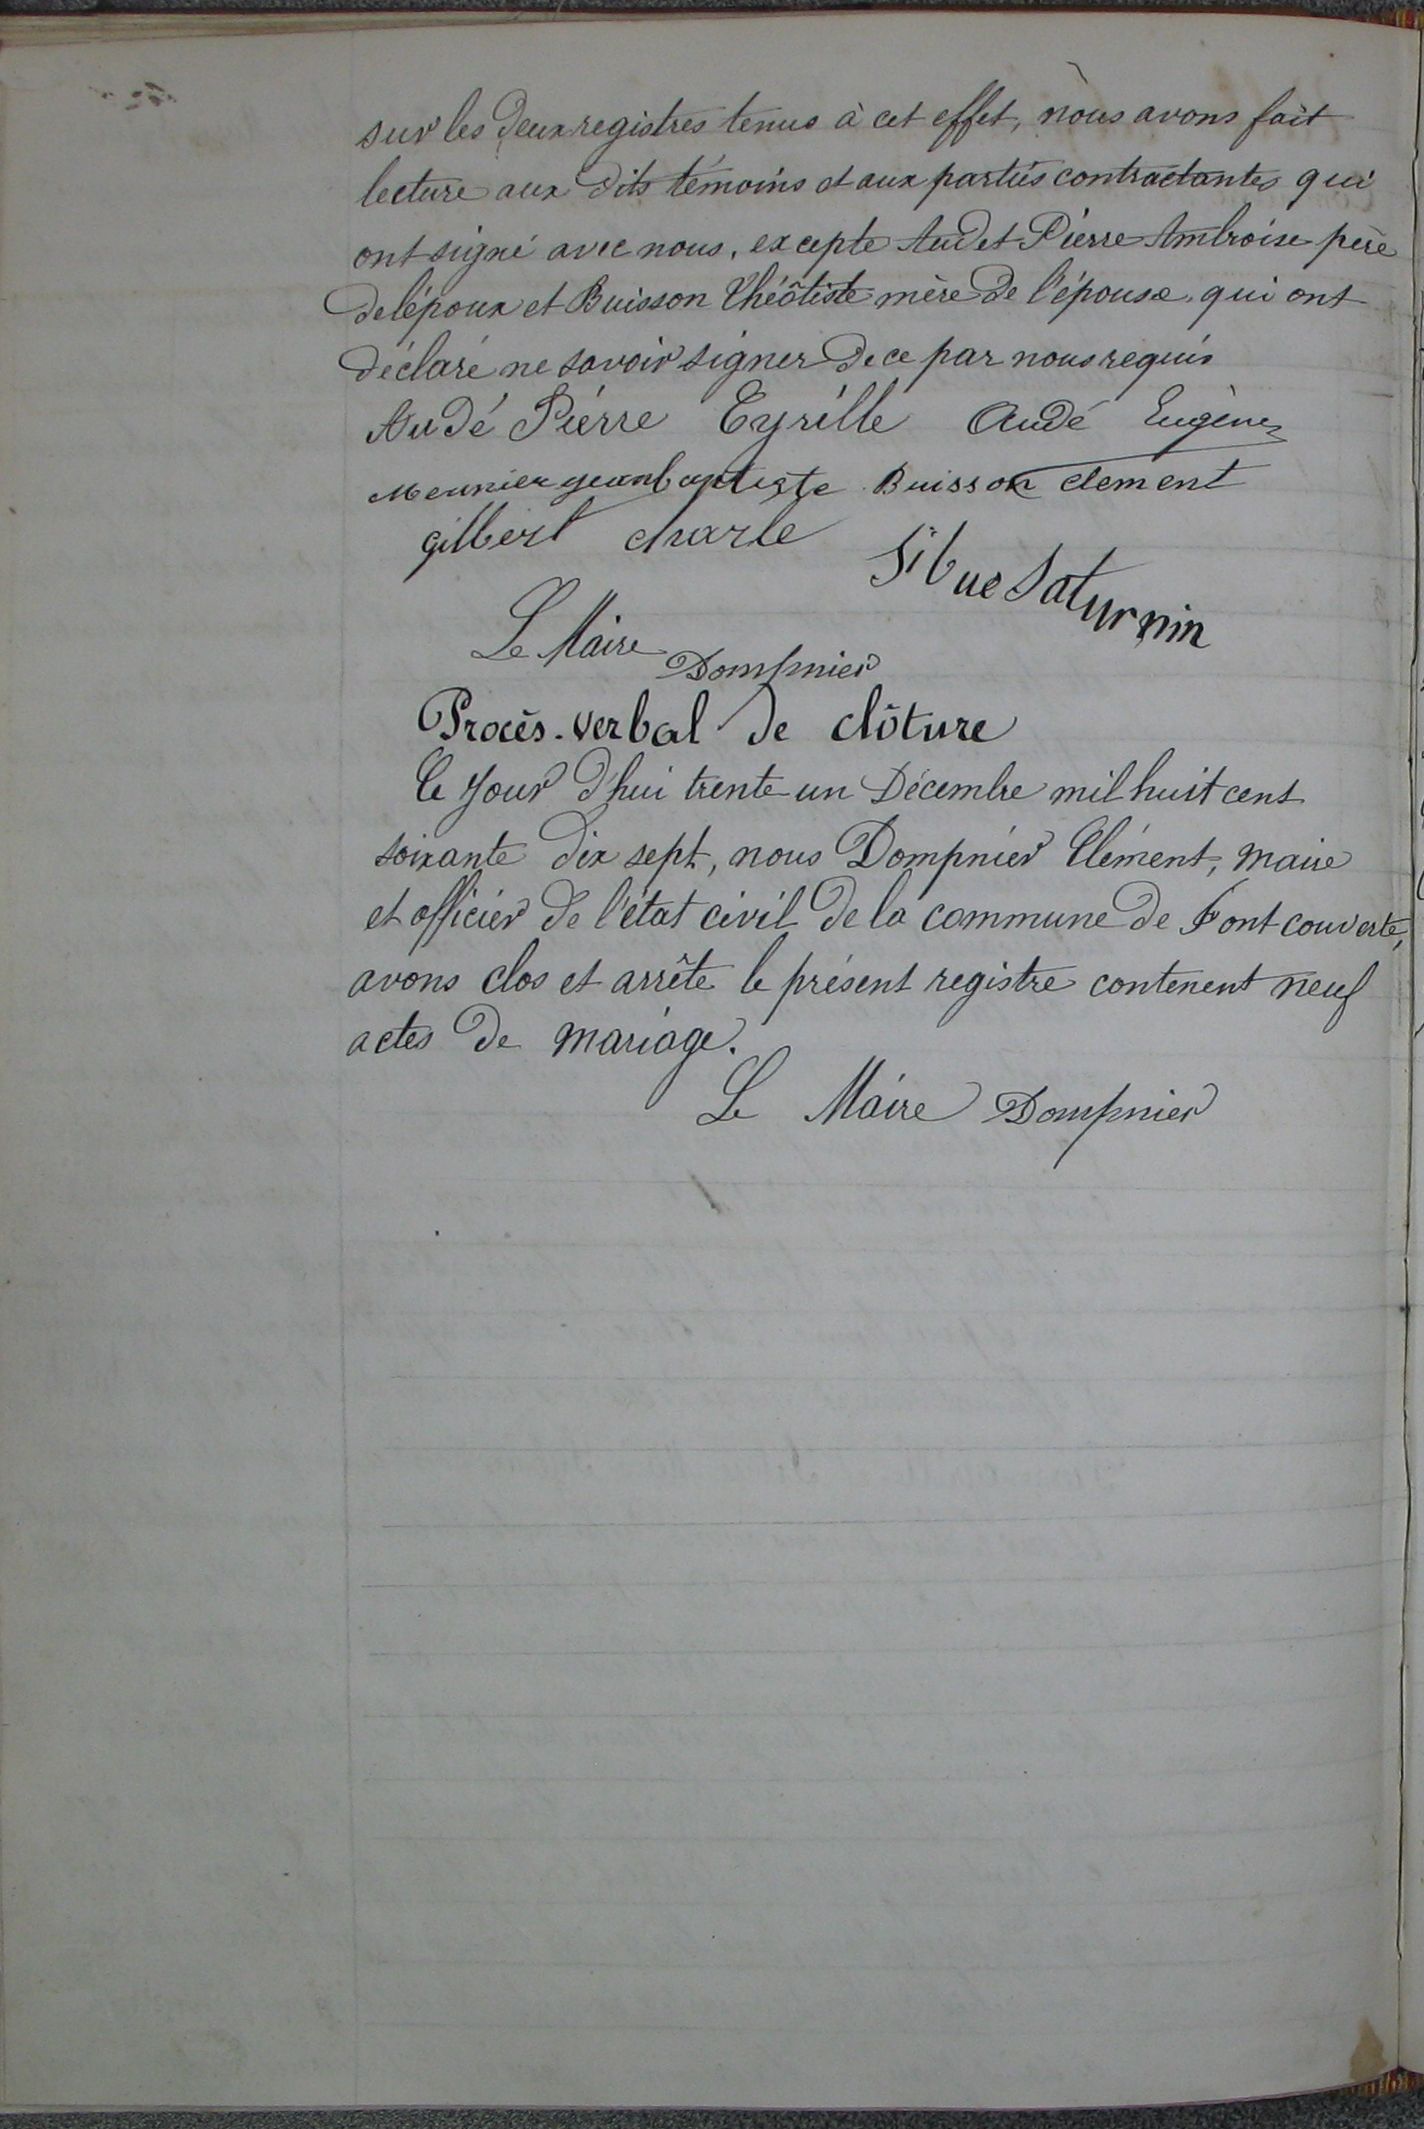 sur les deux registres tenus à cet effet, nous avons fait
lecture aux dits témoins et aux parties contractantes qui
ont signé avec nous, excepte Audet Pierre Ambroise père
de l'époux et Buisson Théôtiste mère de l'épouse, qui ont
déclaré ne savoir signer de ce par nous requis
Audé Pierre Cyrille Audé Eugène
Meunier jeanbaptiste Buisson clement
gilbert charle
Sibue Saturnin
Le Maire Dompnier
Procès-verbal de clôture
Ce jour d'hui trente-un Décembre mil huit cent
soixante dix sept, nous Dompnier Clément, maire
et officier de l'état civil de la commune de Fontcouverte,
avons clos et arrête le présent registre contenent neuf
actes de mariage.
Le Maire Dompnier